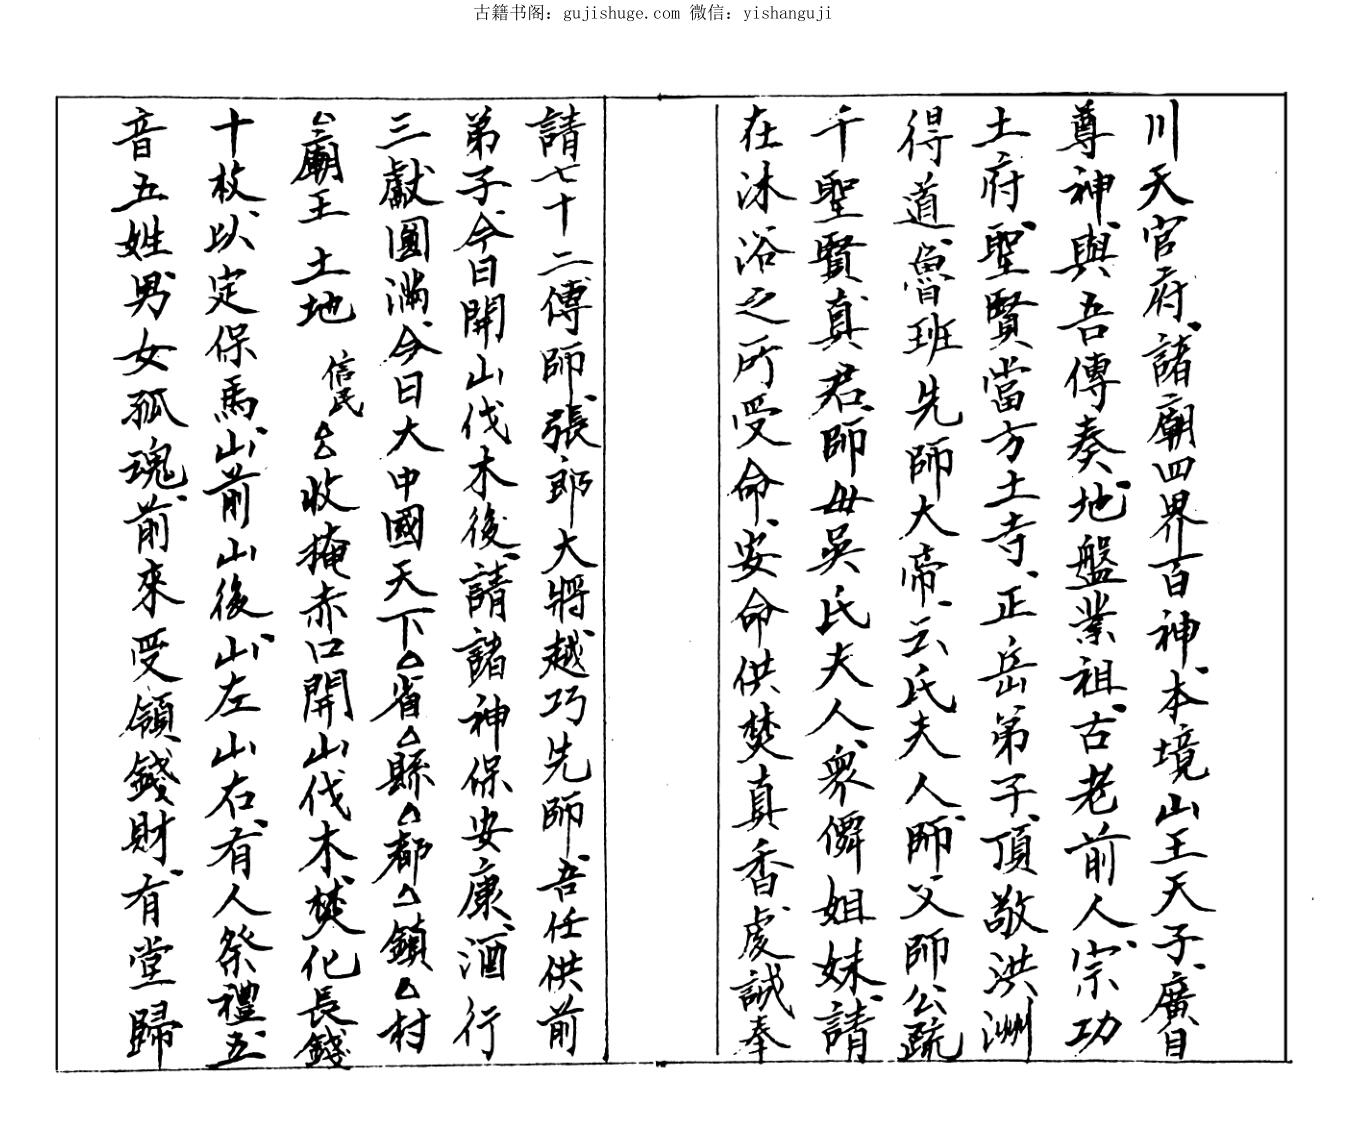 古籍书阁：gujishuge.com 微信：yishanguji
川天官府諸廟四界百神本境山王天子廣自
尊神與吾傳奏地盤業祖古老前人宗功
土府聖賢當方土寺正岳弟子頂敬洪洲
得道魯班先師大帝云氏夫人師父師公疏
千聖賢真君師毋吳氏夫人衆僻姐妹請
在沐浴之所受命安命供焚真香虔誠奉
請七十二傳師張郎大將越巧先師吾任供前
弟子今日開山伐木後請諸神保安康酒行
三獻圓滿今日大中國天下△省△縣△都△鎮△村
△廟王土地 信民△△收掩赤口開山伐木焚化長錢
十枚以定保馬山前山後山左山右有人祭禮五
音五姓男女孤魂前來受領錢財有堂歸